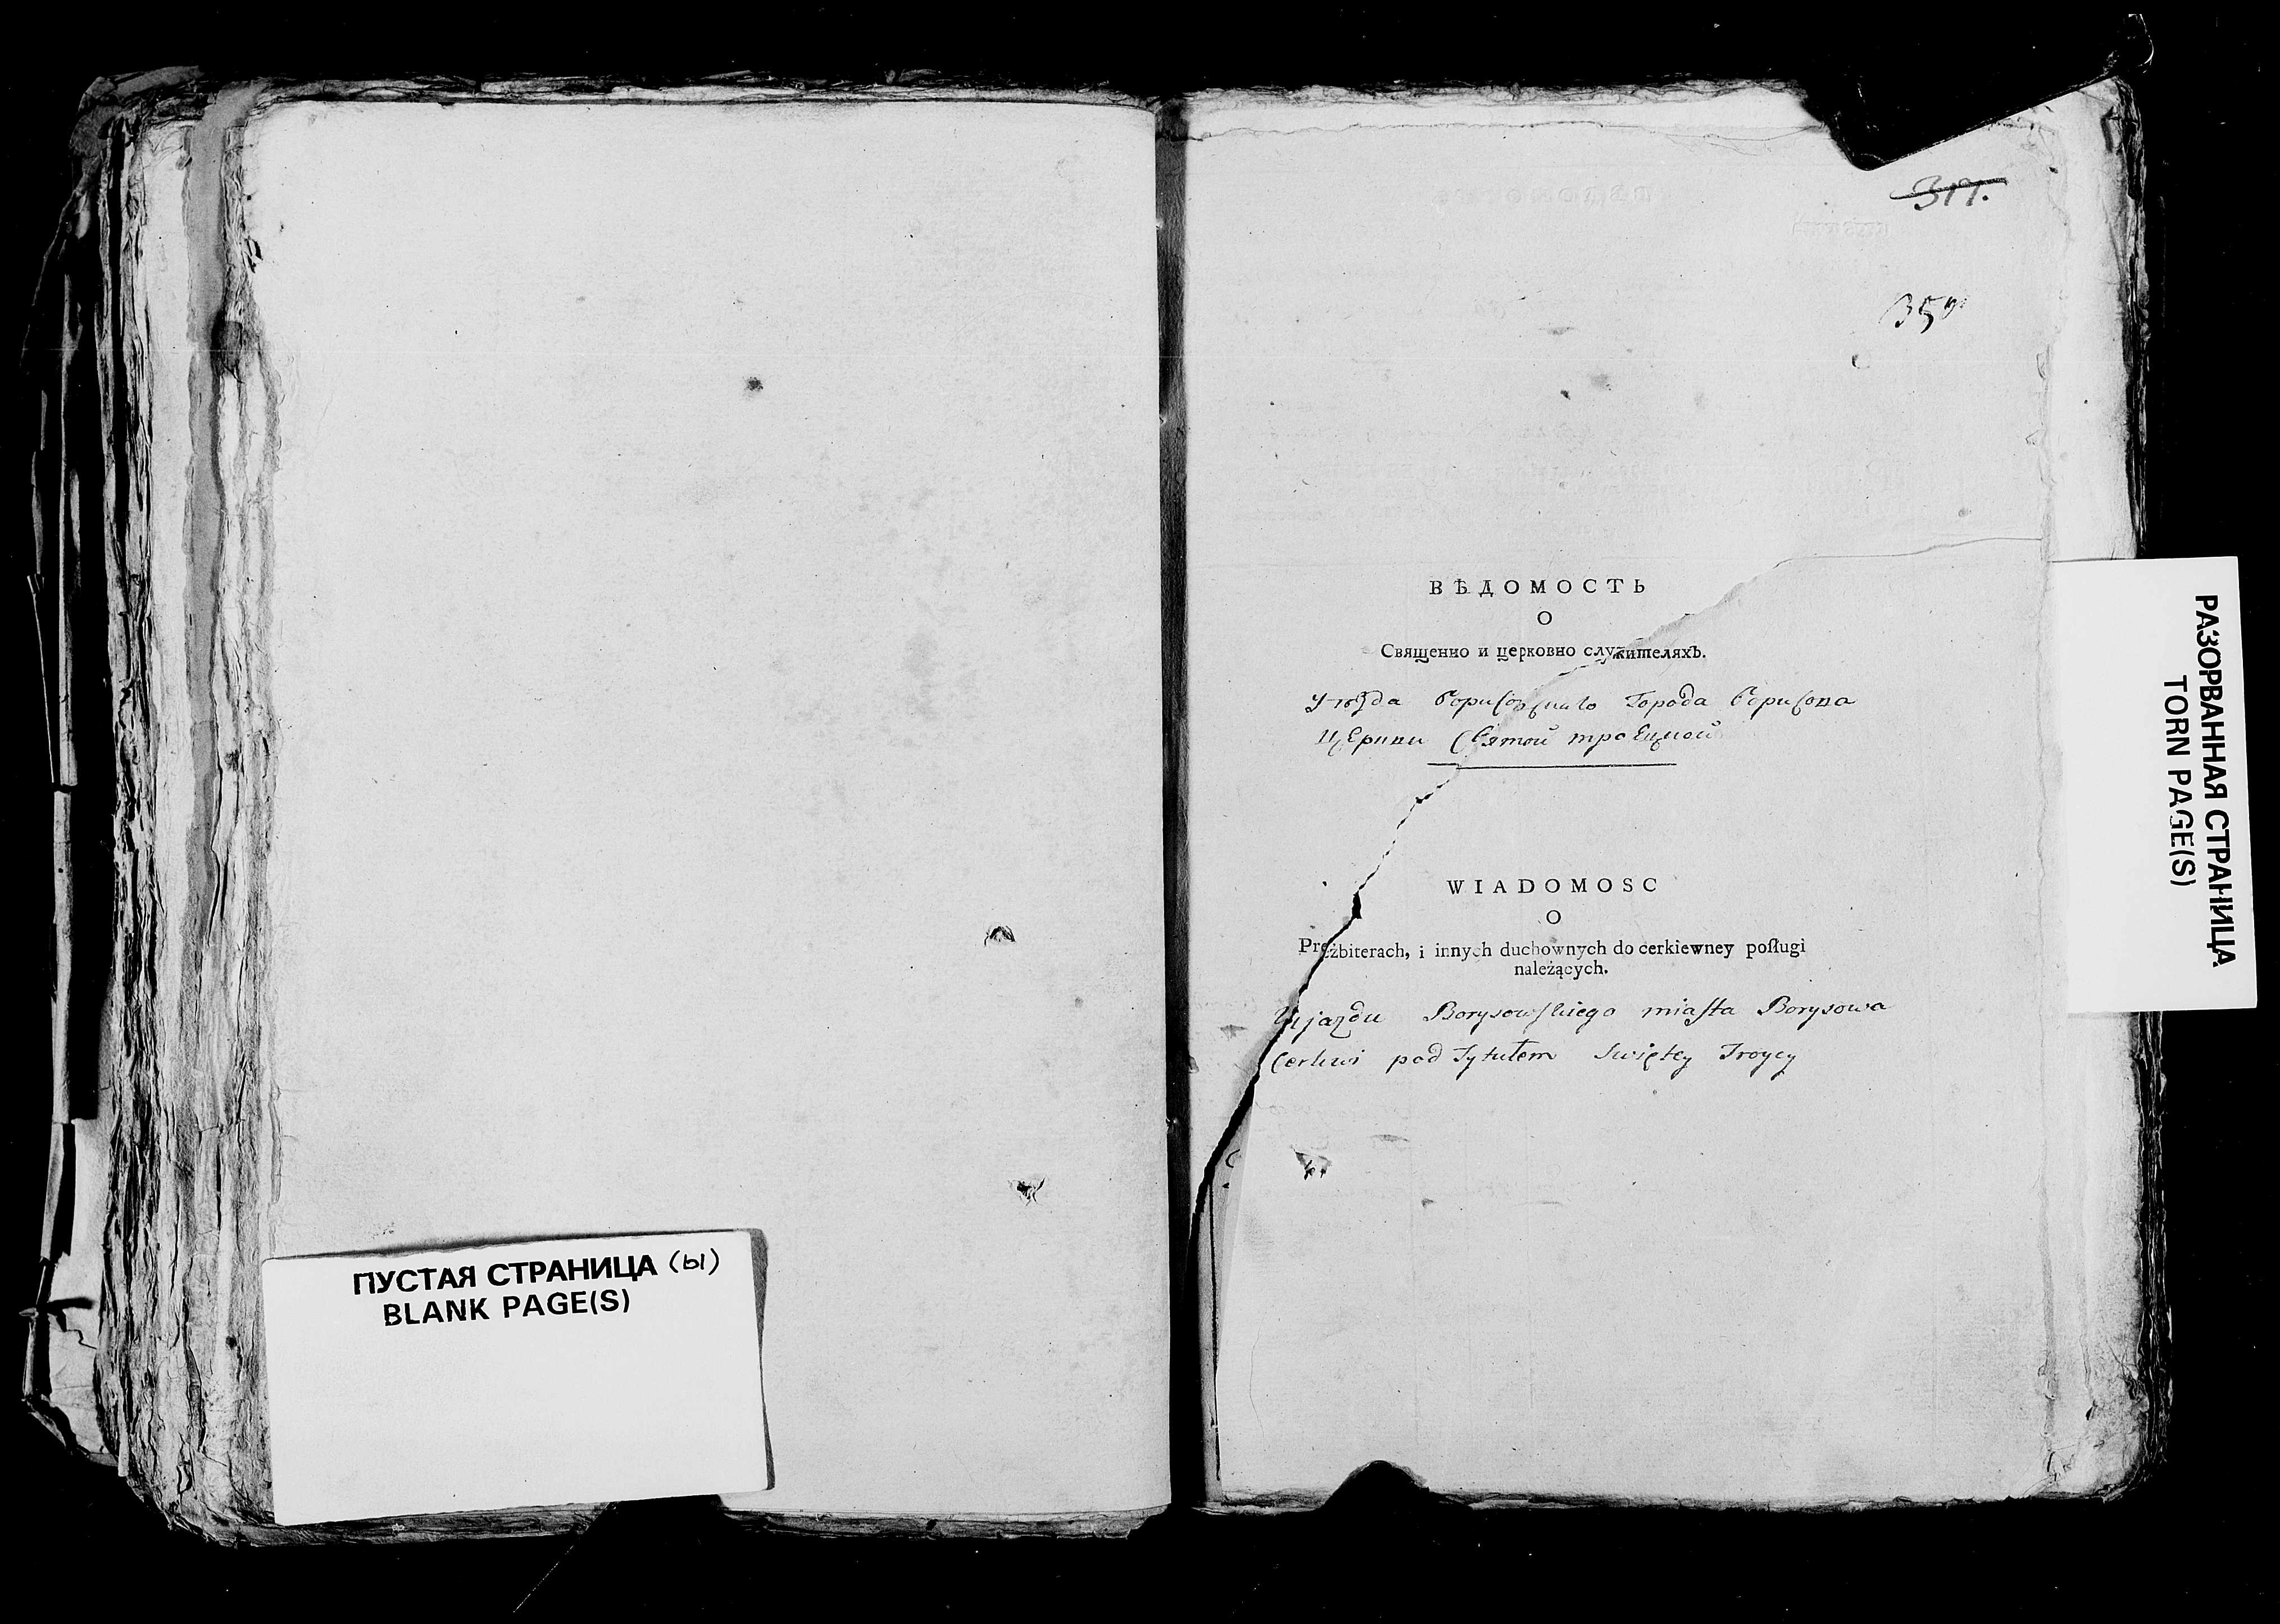 ПУСТАЯ СТРАНИЦА (ы)
BLANK PAGE(S)
317.
359
ВѢДОМОСТЬ
О
Священно и церковно служителяхъ.
Уѣзда Борисовскаго Города Борисова
Церкви Святой троецкой
WIADOMOSC
O
Prezbiterach, i innych duchownych do cerkiewney posługi
należących.
Ujazdu Borysowskiego miasta Borysowa
Cerkwi pod Tytułem Swiętey Troycy
РАЗОРВАННАЯ СТРАНИЦА
TORN PAGE(S)